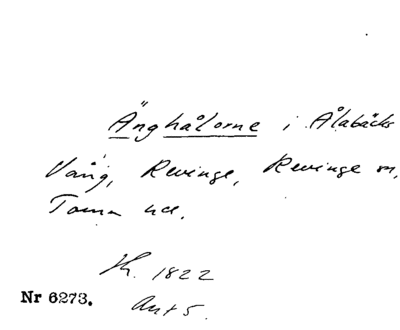 Änghålorne i Ålabäcks
Vång, Revinge, Revinge sn,
Torna hd.
Sk. 1822
Nr 6273. Akt 5.